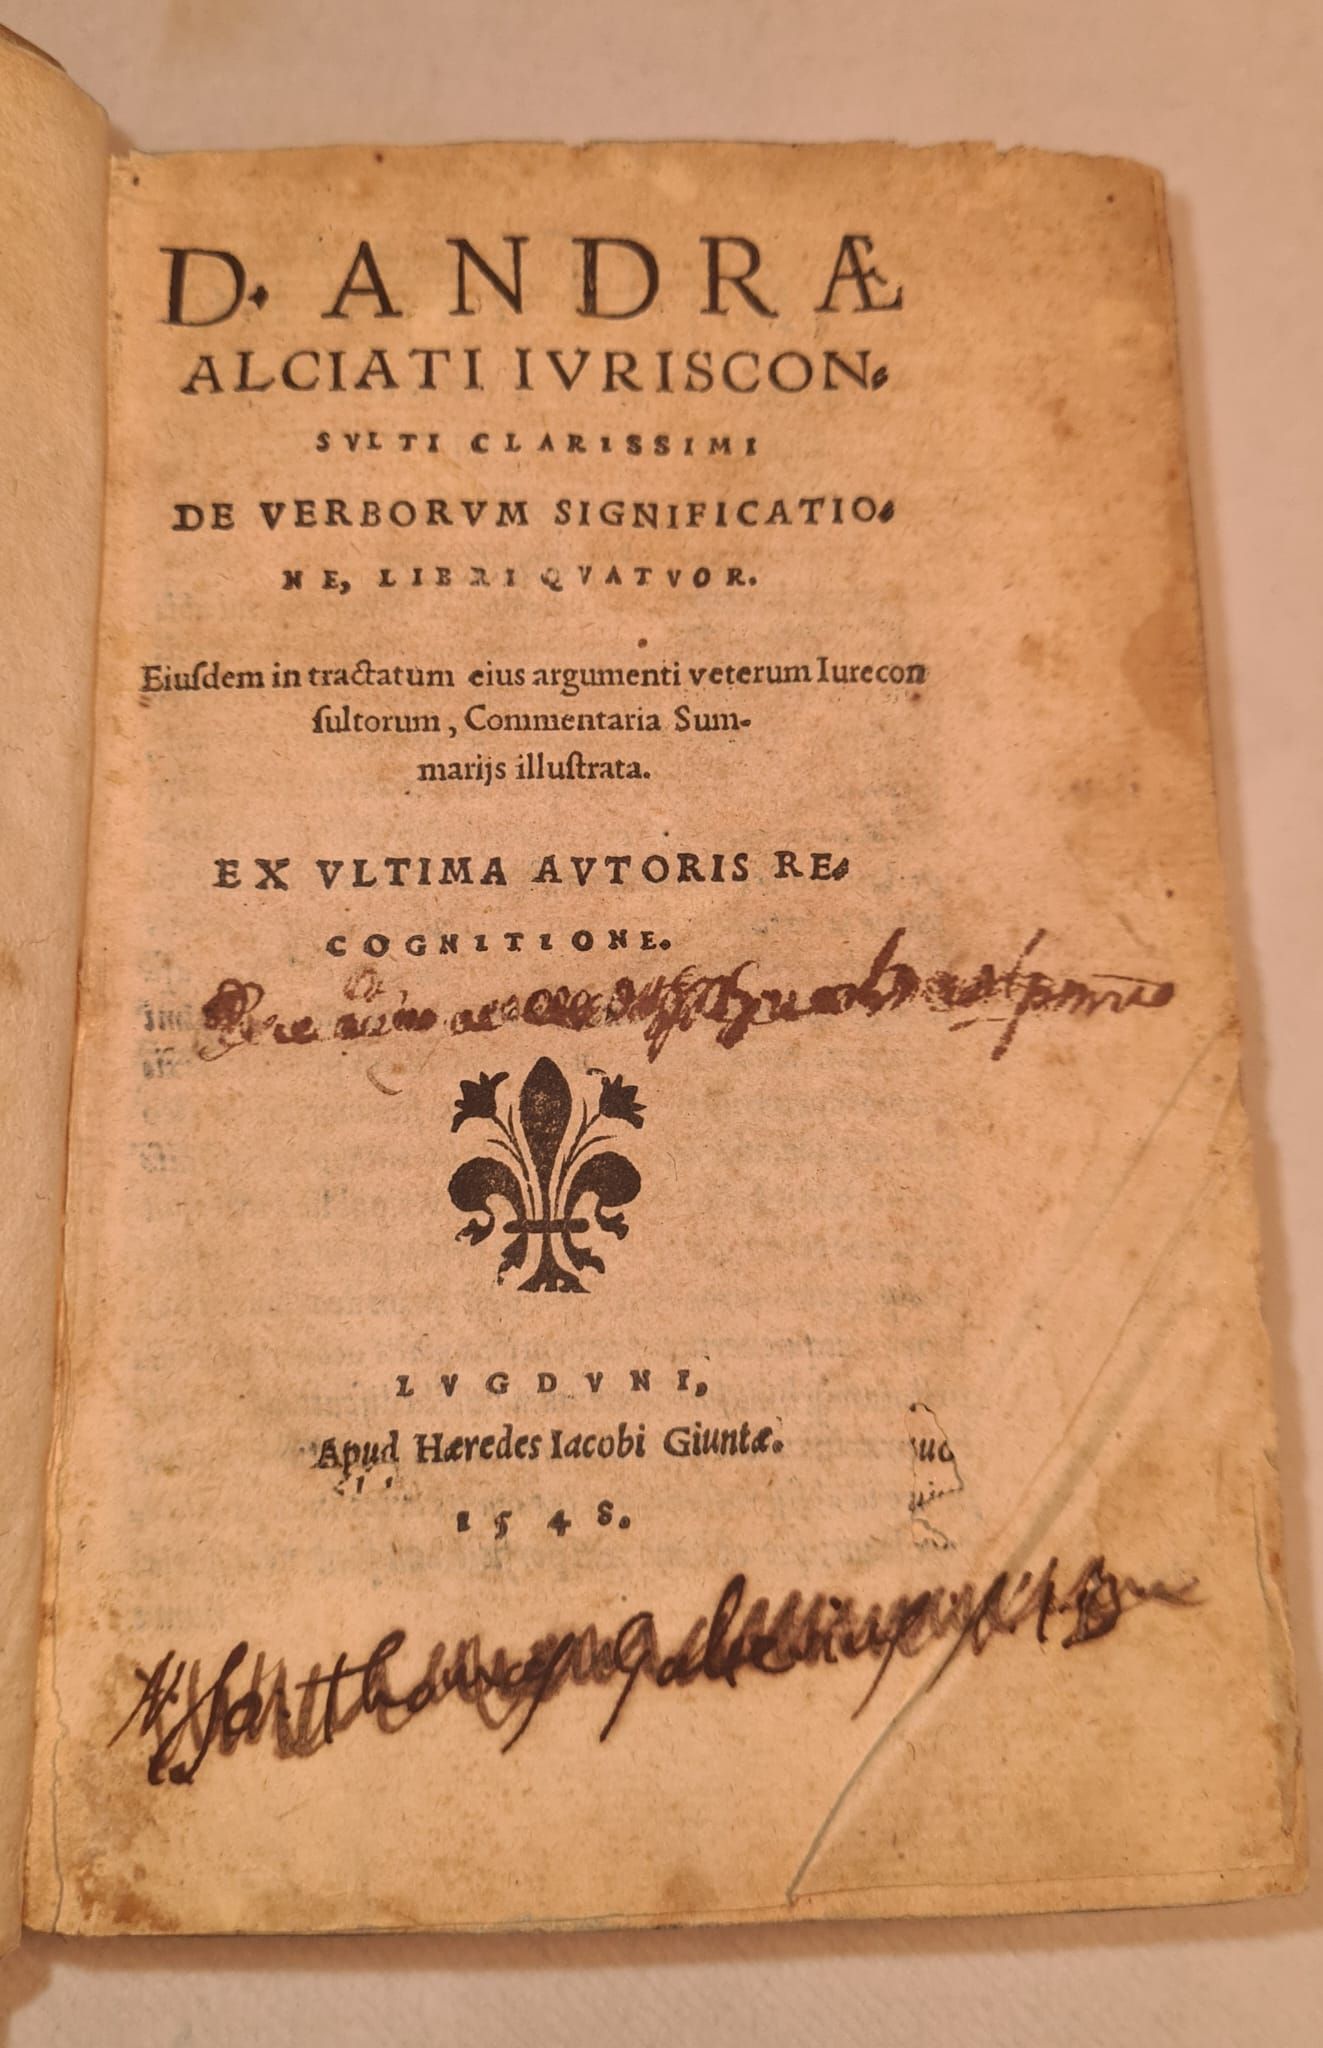 D. ANDRÆ
ALCIATI IVRISCON-
SVLTI CLARISSIMI
DE VERBORVM SIGNIFICATIO-
NE, LIBRI QVATVOR.
Eiuſdem in tractatum eius argumenti veterum Iurecon
ſultorum, Commentaria Sum-
marijs illuſtrata.
EX VLTIMA AVTORIS RE-
COGNITIONE.
LVGDVNI,
Apud Hæredes Iacobi Giuntæ.
1548.